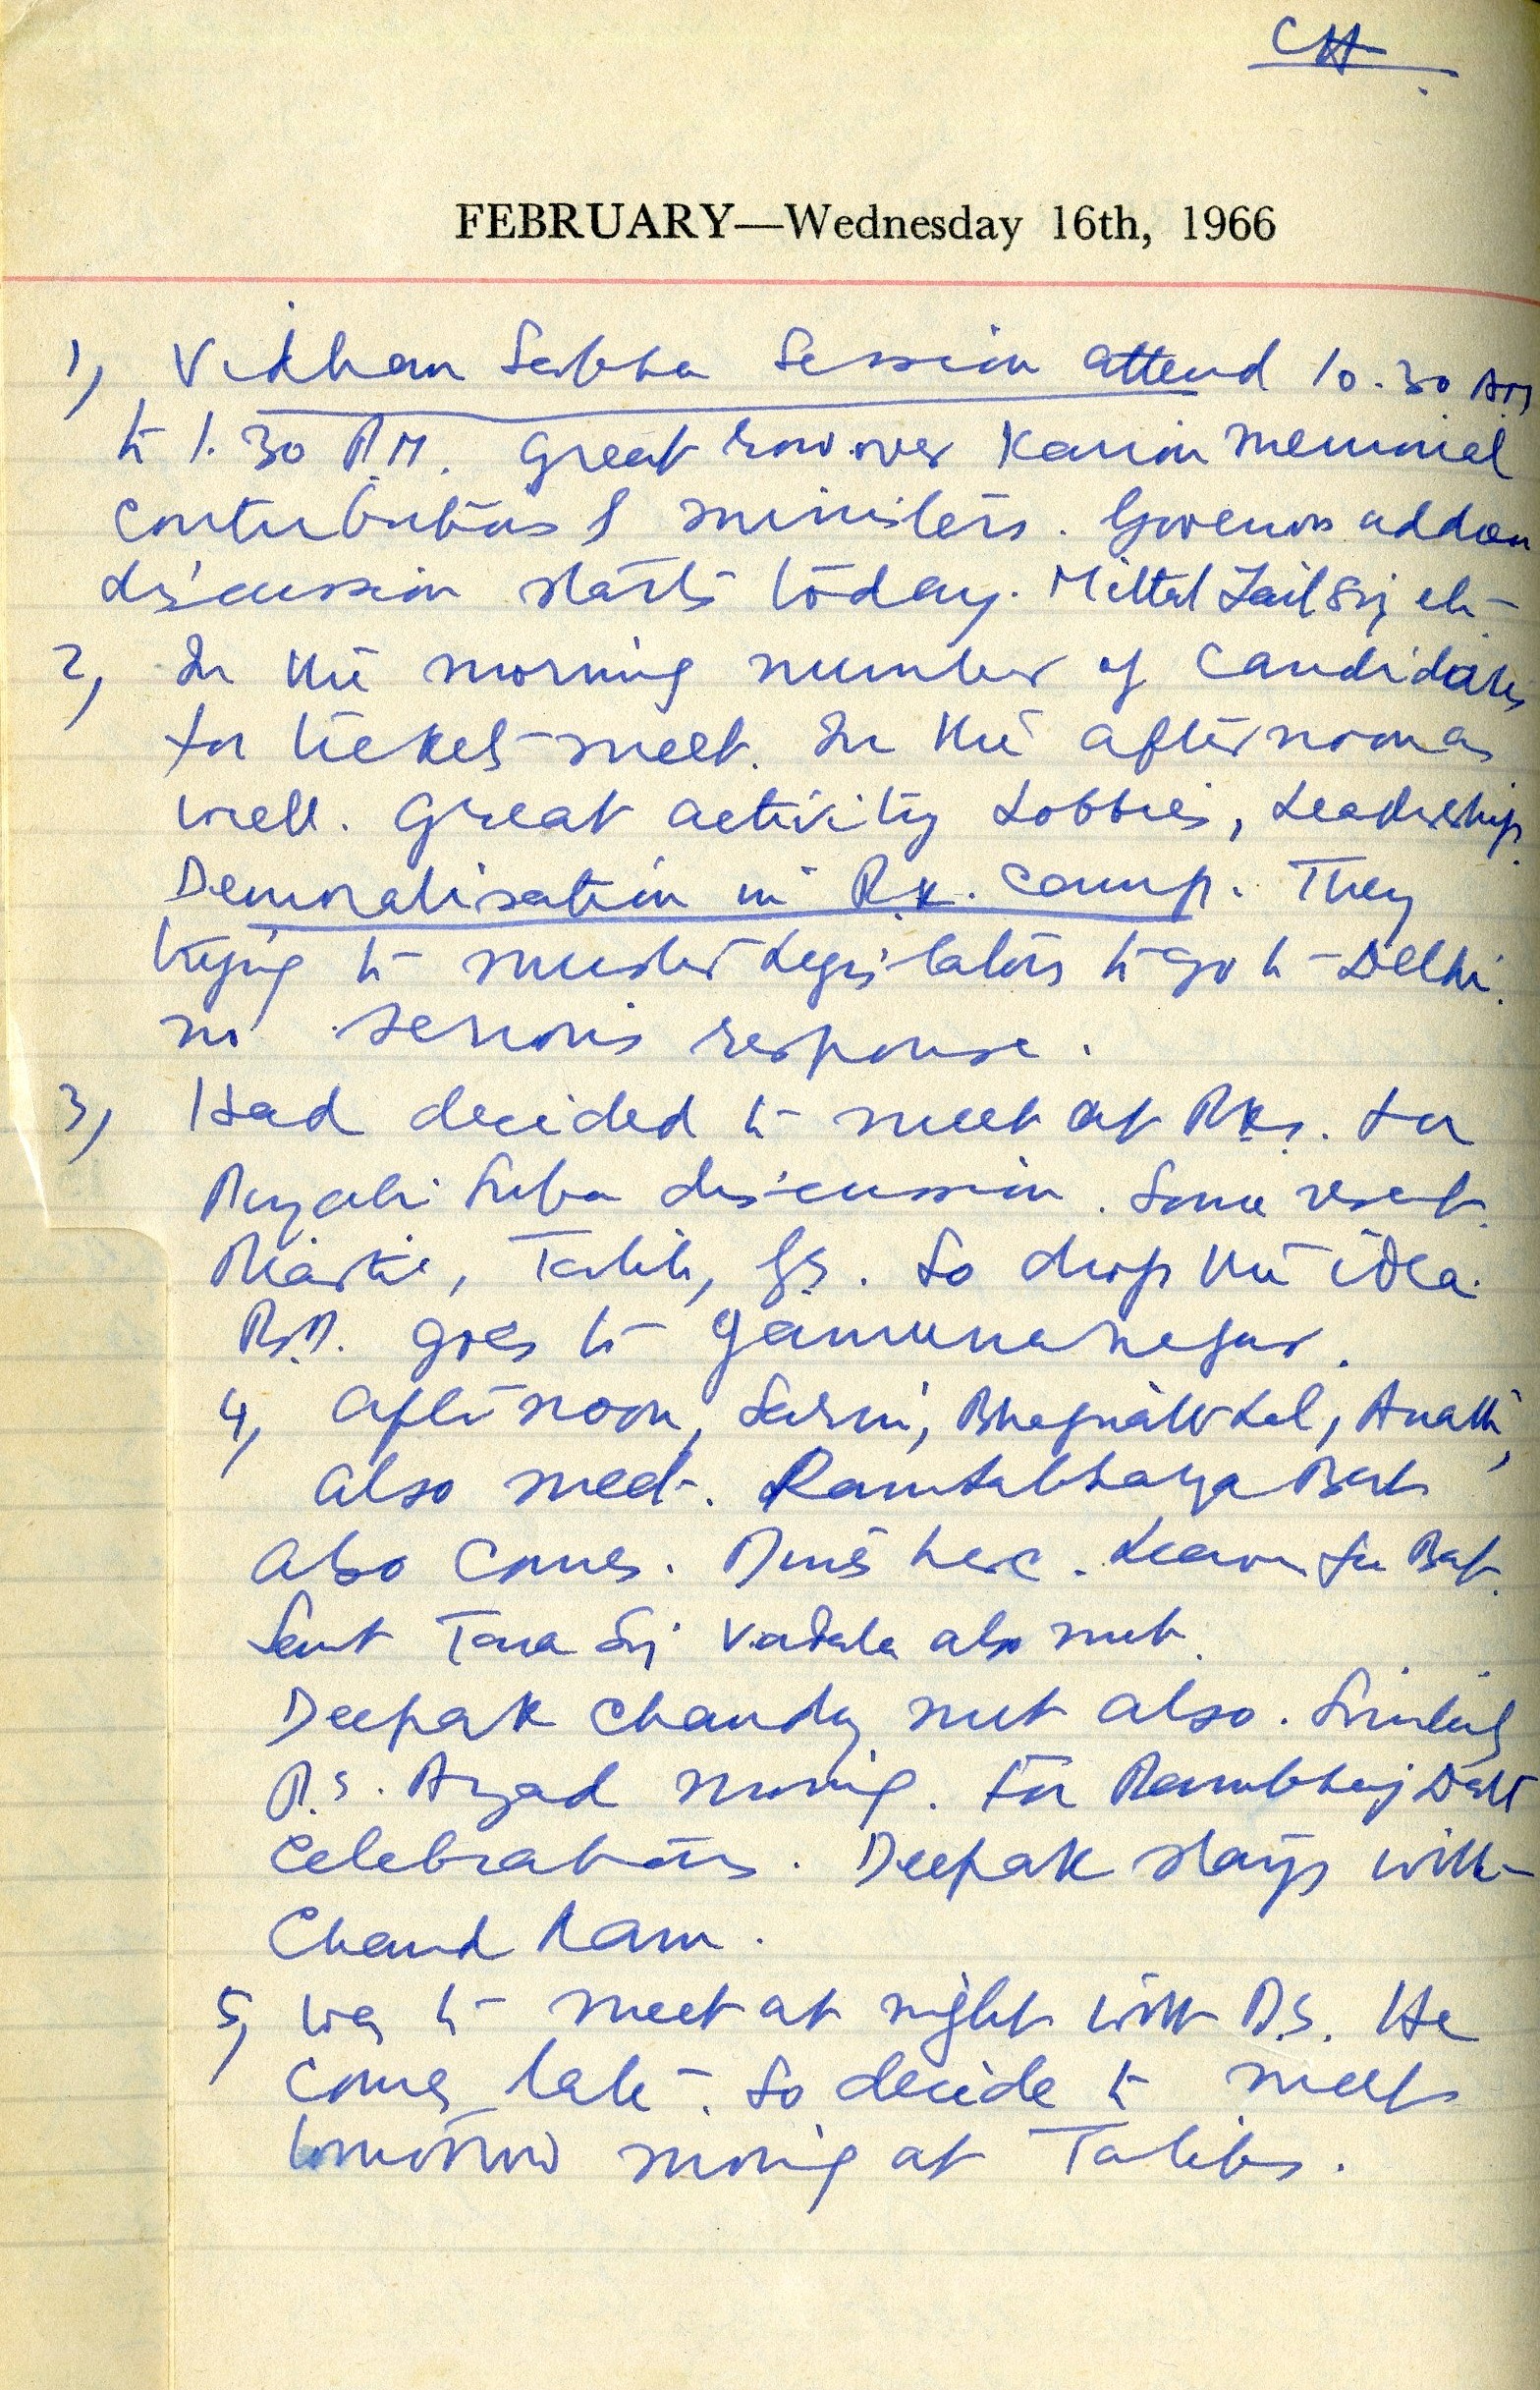 CH
FEBRUARY—Wednesday 16th, 1966
1) Vidhan Sabha Session attend 10.30 AM
to 1.30 P.M. Great row over Kairon memorial
contributions & ministers. Governors address
discussion starts today. Mittal Jail Sij etc
2) In the morning number of candidates
for tickets meet. In the afternoon as
well. Great activity Lobbies, Leadership
Demoralisation in R.K. camp. They
trying to muster Legislators to go to Delhi.
no serious response.
3) Had decided to meet at RKs. for
Punjabi Suba discussion. Some resent.
Talib, GS. So drop the idea.
goes to Jamunanagar.
4) Afternoon, Sarin, Bhagwat Lal,
also meet. Ramlabhaya
also comes. Dines here. Leave for
Sant Tara Sij Vadala also met.
Deepak Chandy met also. Similarly
P.S. Azad morning. For Rambhaj Datt
Celebrations. Deepak stays with
Chand Ram.
5) was to meet at night with D.S. He
comes late. So decide to meet
tomorrow morning at Talibs.